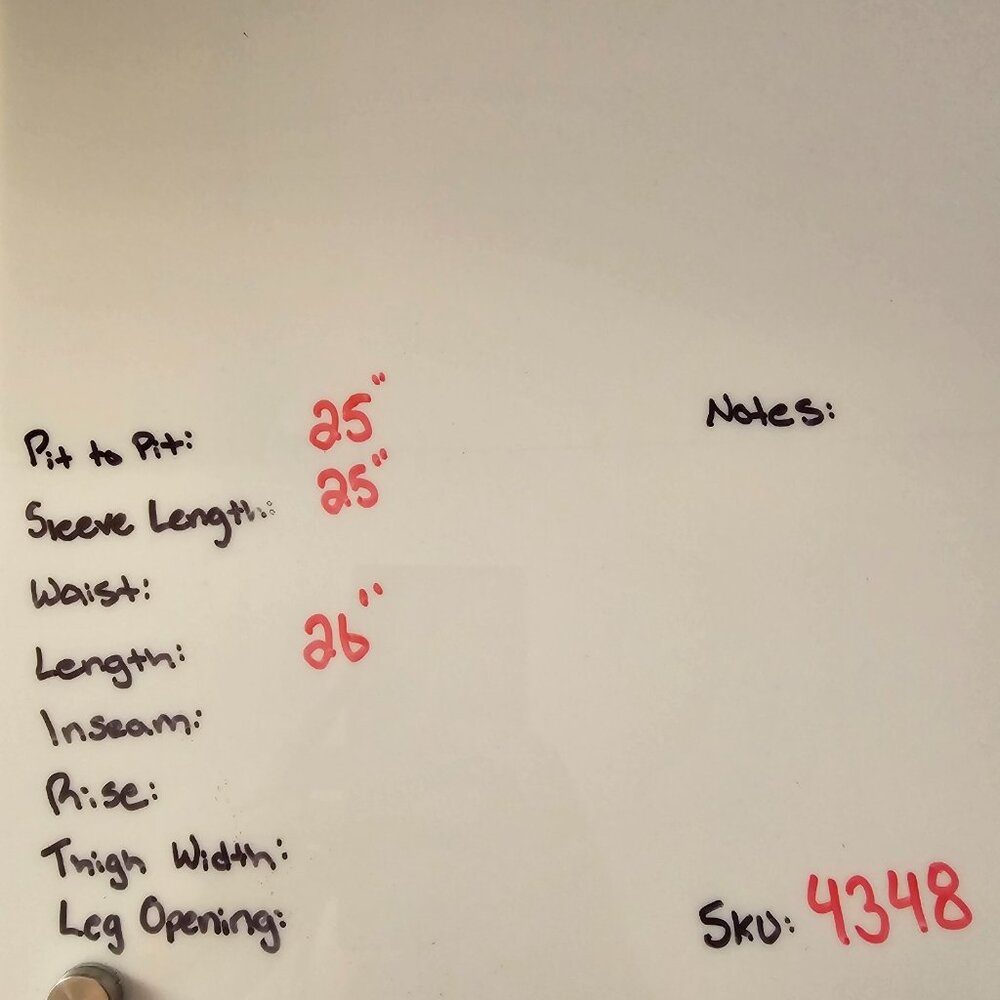 Pit to Pit: 25"
Sleeve Length: 25"
Waist:
Length: 26"
Inseam:
Rise:
Thigh Width:
Leg Opening:
Notes:
SKU: 4348